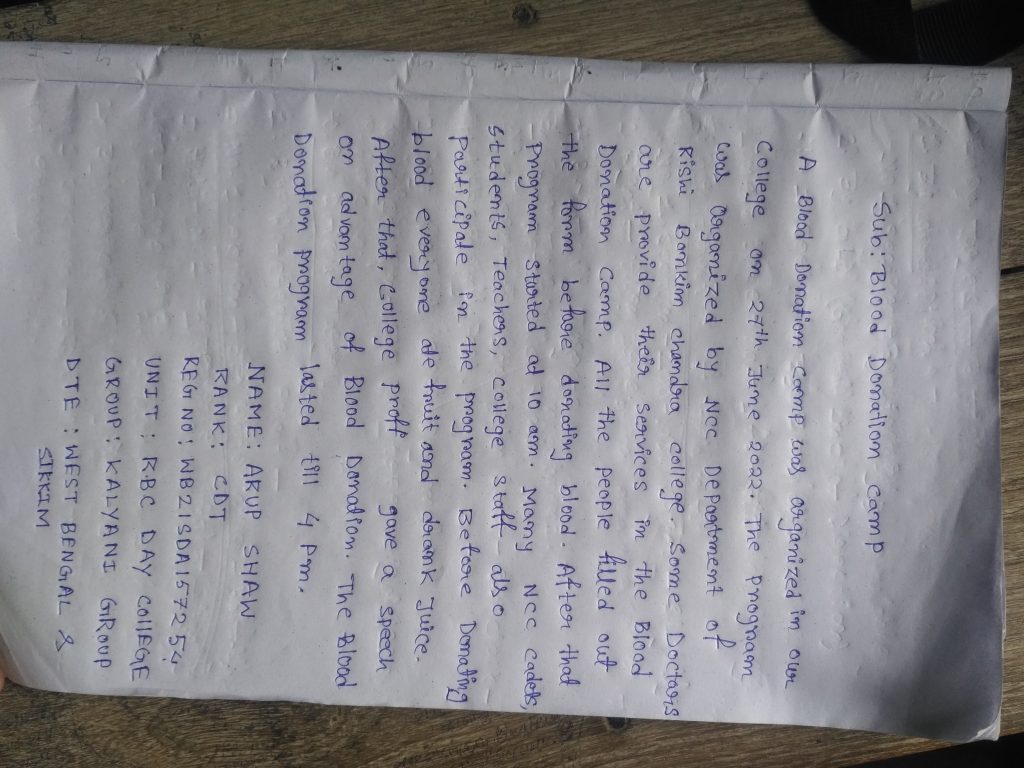 Sub: Blood Donation Camp
A Blood Donation Camp was organized in our
College on 27th June 2022. The program
was organized by Ncc Department of
Rishi Bamkim Chandra College. Some Doctors
are provide their services in the Blood
Donation Camp. All the people filled out
the form before donating blood. After that
Program started at 10 am. Many Ncc cadets,
students, Teachers, college staff also
participate in the program. Before Donating
blood everyone ate fruit and drank juice.
After that, College proff gave a speech
on advantage of Blood Donation. The Blood
Donation program lasted till 4 pm.
NAME: ARUP SHAW
RANK: CDT
REG NO: WB21SDA157254
UNIT: RBC DAY COllEGE
GROUP: KALYANI GROUP
DTE: WEST BENGAL &
SIKKIM